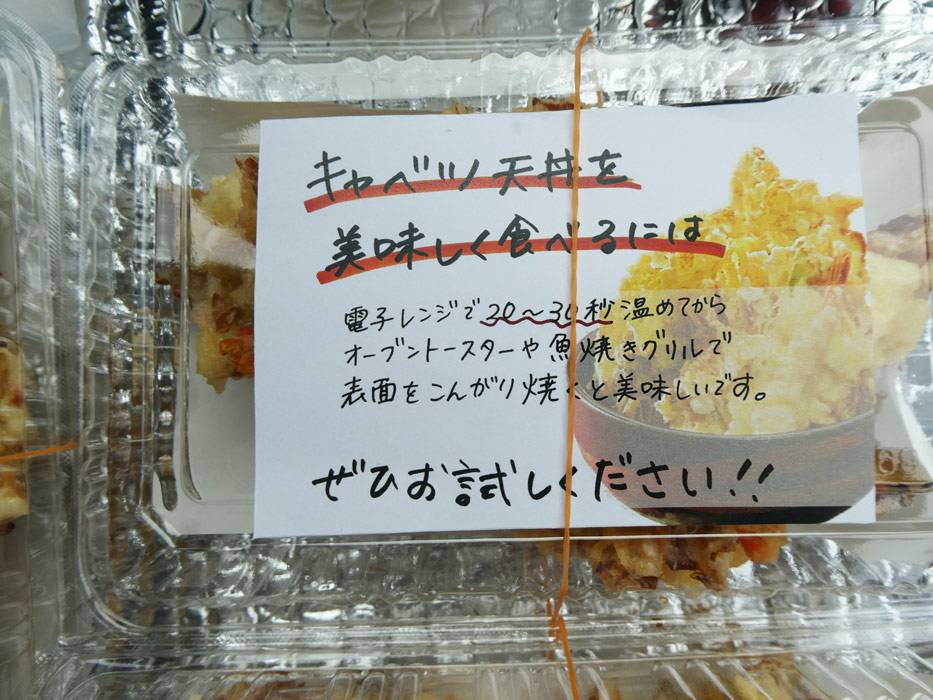 キャベツ天丼を
美味しく食べるには
電子レンジで20〜30秒温めてから
オーブントースターや魚焼きグリルで
表面をこんがり焼くと美味しいです。
ぜひお試しください!!